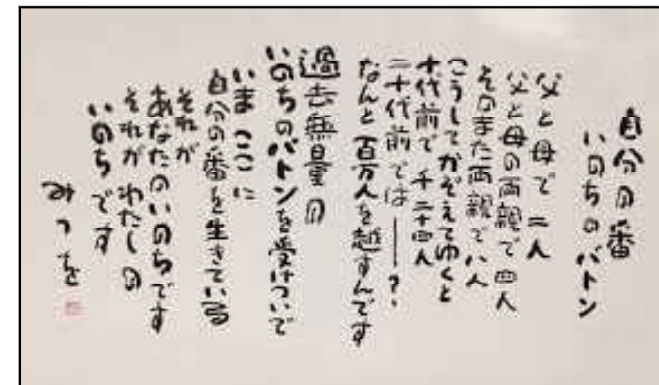 自分の番
いのちのバトン
父と母で二人
父と母の両親で四人
そのまた両親で八人
こうしてかぞえてゆくと
十代前で千二十四人
二十代前では――?・
なんと百万人を越すんです
過去無量の
いのちのバトンを受けついで
いまここに
自分の番を生きている
それが
あなたのいのちです
それがわたしの
いのちです
みつを